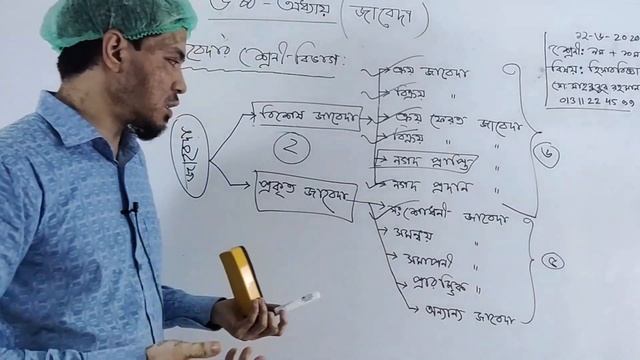 ৬ষ্ঠ - অধ্যায় (জাবেদা)
শ্রেনী-বিভাগ:
২২-৬-2020
শ্রেনী: ৯ম + ১০ম
বিষয়: হিসাববিজ্ঞান
01311 22 45
জাবেদা
বিশেষ জাবেদা
2
প্রকৃত জাবেদা
ক্রয় জাবেদা
বিক্রয় "
ক্রয় ফেরত জাবেদা
বিক্রয় " "
নগদ প্রাপ্তি "
নগদ প্রদান "
৬
সংশোধনী জাবেদা
সমন্বয় "
সমাপনী "
প্রারম্ভিক "
অন্যান্য জাবেদা
৫